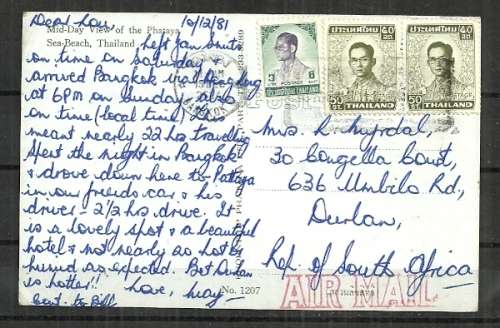 Mid-Day View of the Phataya
Sea-Beach, Thailand
10/12/81
Dear Lou,
Left Jan Smuts
on time on Saturday
arrived Bangkok via Hong Kong
at 6PM on Sunday also
on time (local time)
meant nearly 22 hrs travelling
Spent the night in Bangkok
& drove down here to Pattaya
in our friends car & his
driver - 2 1/2 hrs drive. It
is a lovely spot & a beautiful
hotel & not nearly as hot &
humid as expected. Bet Durban
is hotter!! Love, May
Love to Bill
No. 1207
ประเทศไทย
THAILAND
๕๐ สต.
50 ST.
ประเทศไทย
THAILAND
๕๐ สต.
50 ST.
ประเทศไทย THAILAND
Mrs. L. Myrdal,
30 Congella Court,
636 Umbilo Rd,
Durban,
Rep. of South Africa
AIR MAIL